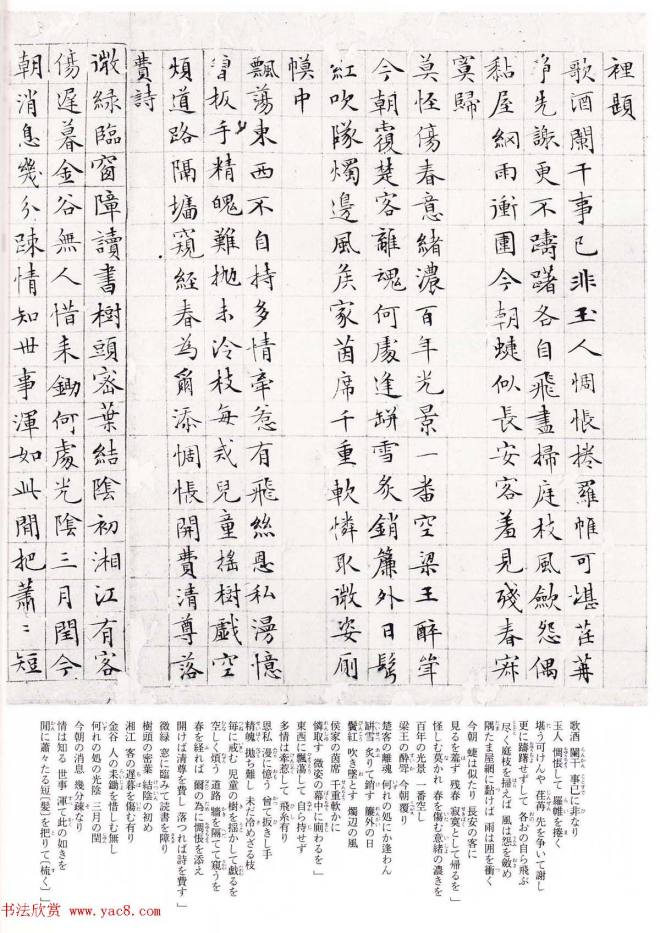 裡顋
歌酒闌干事已非玉人惆悵捲羅帷可堪荏苒
爭先謝更不躊躇各自飛盡掃庭枝風斂怨偶
黏屋網雨衝圍今朝蜨似長安客羞見殘春寂
寞歸
莫怪傷春意緒濃百年光景一番空梁王醉聳
今朝覆楚客離魂何處逢缾雪炙銷簾外日鬢
紅吹隊燭邊風矦家茵席千重軟憐取微姿厠
幙中
飄蕩東西不自持多情牽惹有飛絲恩私漫憶
曾板手精魄難拋未泠枝每戒兒童搖樹戲空
煩道路隔墻窺經春為爾添惆悵開費清尊落
費詩
微緑臨窗障讀書樹頭宻葉結陰初湘江有客
傷遲暮金谷無人惜耒鋤何處光陰三月閏今
朝消息幾分疎情知世事渾如此閒把蕭〻短
歌酒 闌干 事已に非なり
玉人 惆悵して 羅帷を捲く
堪う可けんや 荏苒 先を争いて謝し
更に躊躇せずして 各おの自ら飛ぶ
尽く庭枝を掃えば 風は怨を斂め
隅たま屋網に黏けば 雨は囲を衝く
今朝 蜨は似たり 長安の客に
見るを羞ず 残春 寂寞として帰るを」
怪しむ莫かれ 春を傷む意緒の濃きを
百年の光景 一番空し
梁王の酔聳 今朝覆り
楚客の離魂 何れの処にか逢わん
缾雪 炙りて銷す 簾外の日
鬢紅 吹き墜とす 燭辺の風
侯家の茵席 千重軟かに
憐取す 微姿の幕中に厠わるを」
東西に飄蕩して 自ら持せず
多情は牽惹して 飛糸有り
恩私 漫に憶う 曾て扳きし手
精魄 拋ち難し 未だ冷めざる枝
毎に戒む 児童の樹を揺かして戯るを
空しく煩う 道路 牆を隔てて窺うを
春を経れば 爾の為に惆悵を添え
開けば清尊を費し 落つれば詩を費す」
微緑 窓に臨みて読書を障り
樹頭の密葉 結陰の初め
湘江 客の遅暮を傷む有り
金谷 人の耒鋤を惜しむ無し
何れの処の光陰 三月の閏
今朝の消息 幾分疎なり
情は知る 世事 渾て此の如きを
閒に蕭々たる短〔髪〕を把りて〔梳く〕」
书法欣赏 www.yac8.com